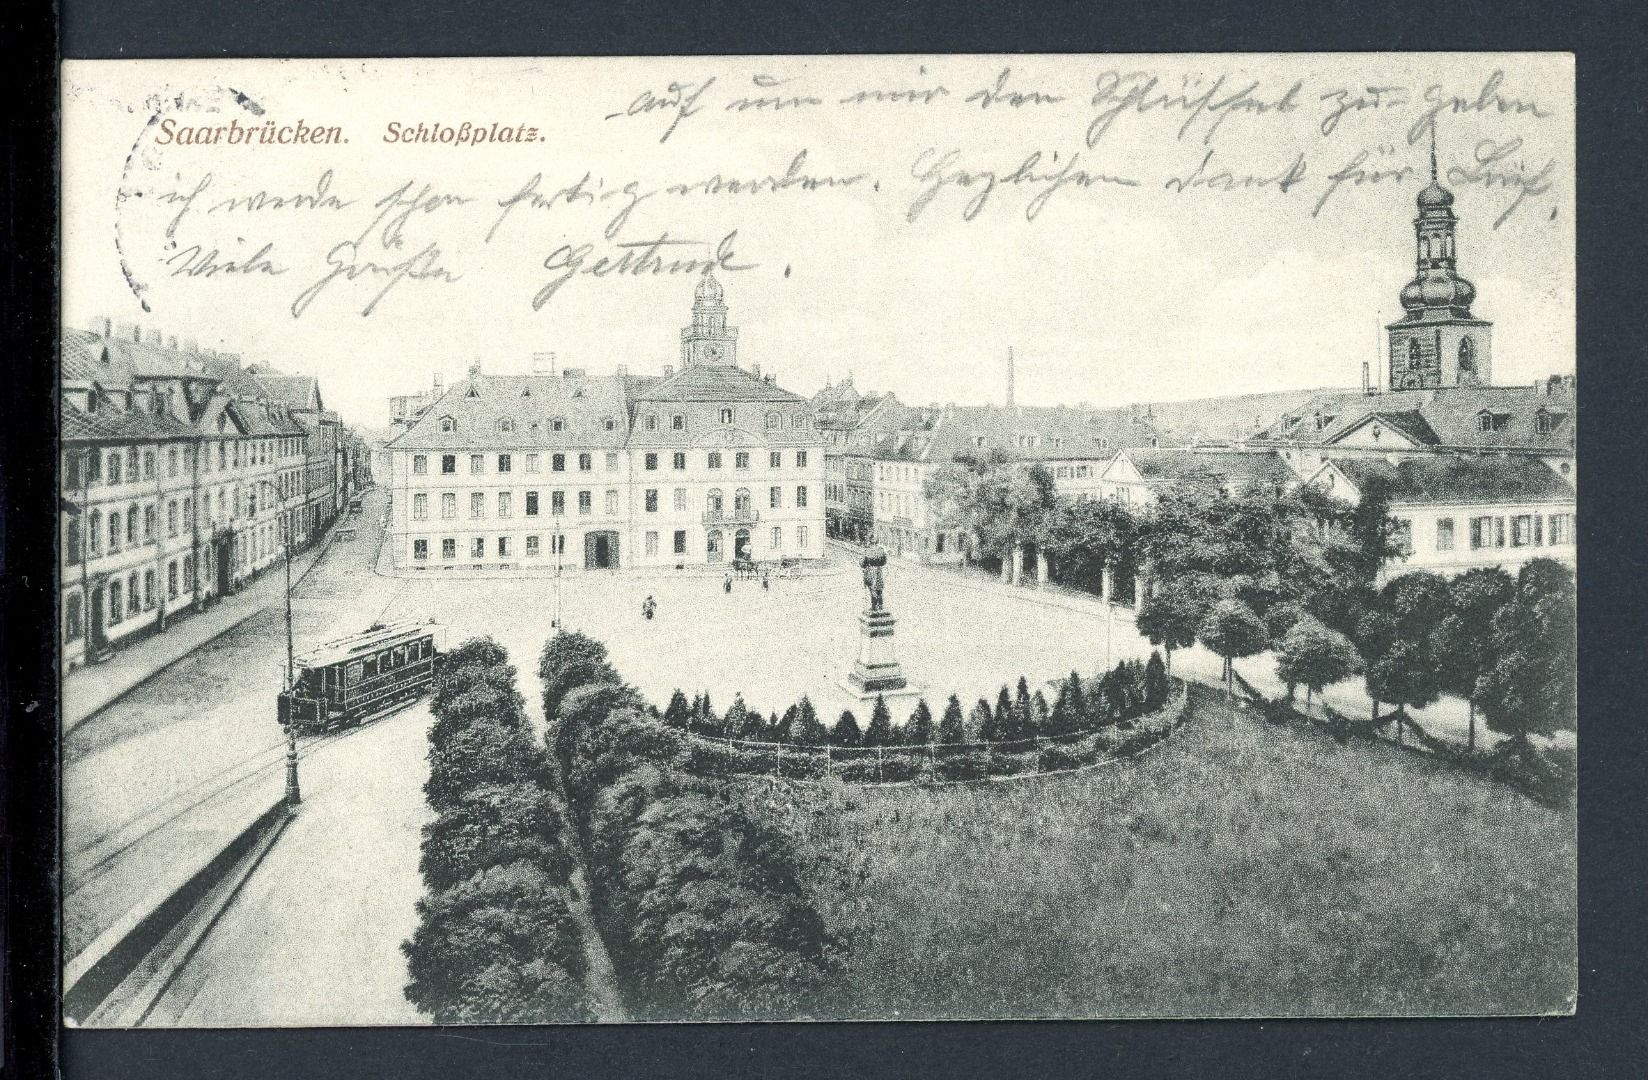 Saarbrücken. Schloßplatz.
auf um mir den Schlüssel zu geben
ich werde schon fertig werden. Herzlichen dank für Brief.
Viele Grüße Gertrude.